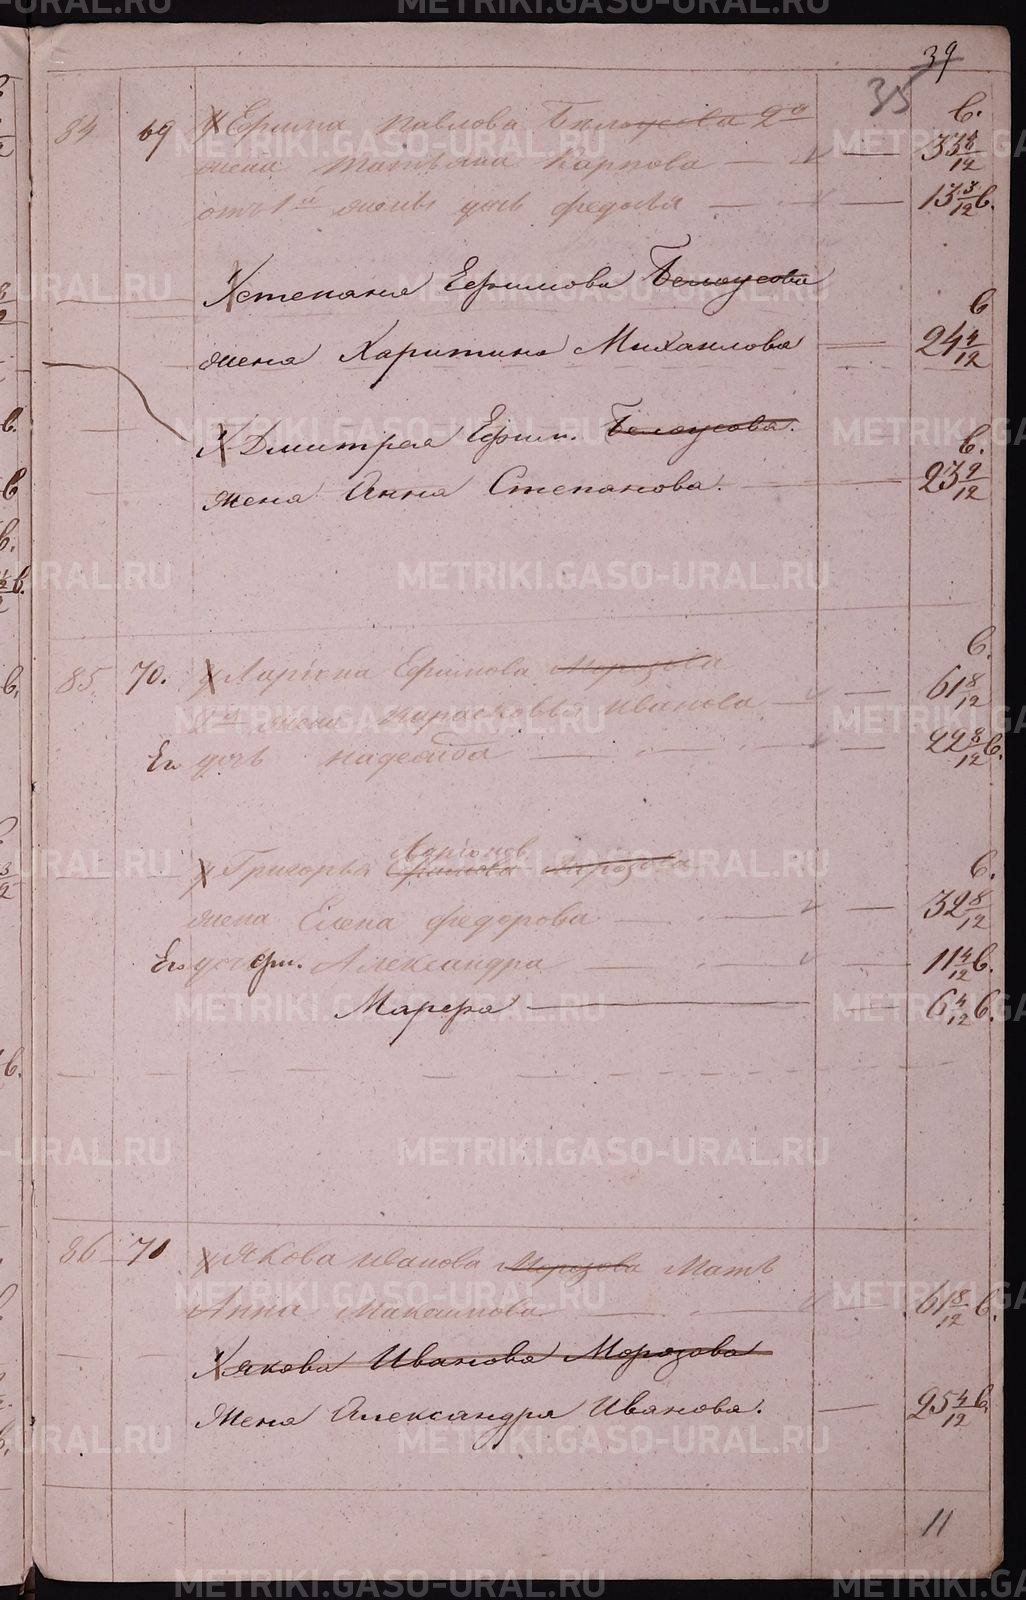 39
35
84 69 Ефима Павлова Белоусова 2я в.
жена Татьяна Карпова 33 4/12
отъ 1й жены дочь Федосья 13 3/12 в.
Степана Ефимова Белоусова в
жена Харитина Михайлова 24 4/12
Дмитрея Ефим. Белоусова. в.
жена Анна Степанова. 23 9/12
85. 70. Ларіона Ефимова Морозова в.
жена Парасковья Иванова 61 8/12
Ег. дочь Надежда 22 8/12 в.
Ларіонов
Григорья Ефимова Морозова в.
жена Елена Федорова 32 8/12
Ег. дочери. Александра 11 4/12 в.
Марфа 6 4/12 в.
86 71 Якова Иванова Морозова Мать
Анна Максимова 61 8/12 в.
Якова Иванова Морозова
жена Александра Иванова. 25 4/12 в.
11
METRIKI.GASO-URAL.RU